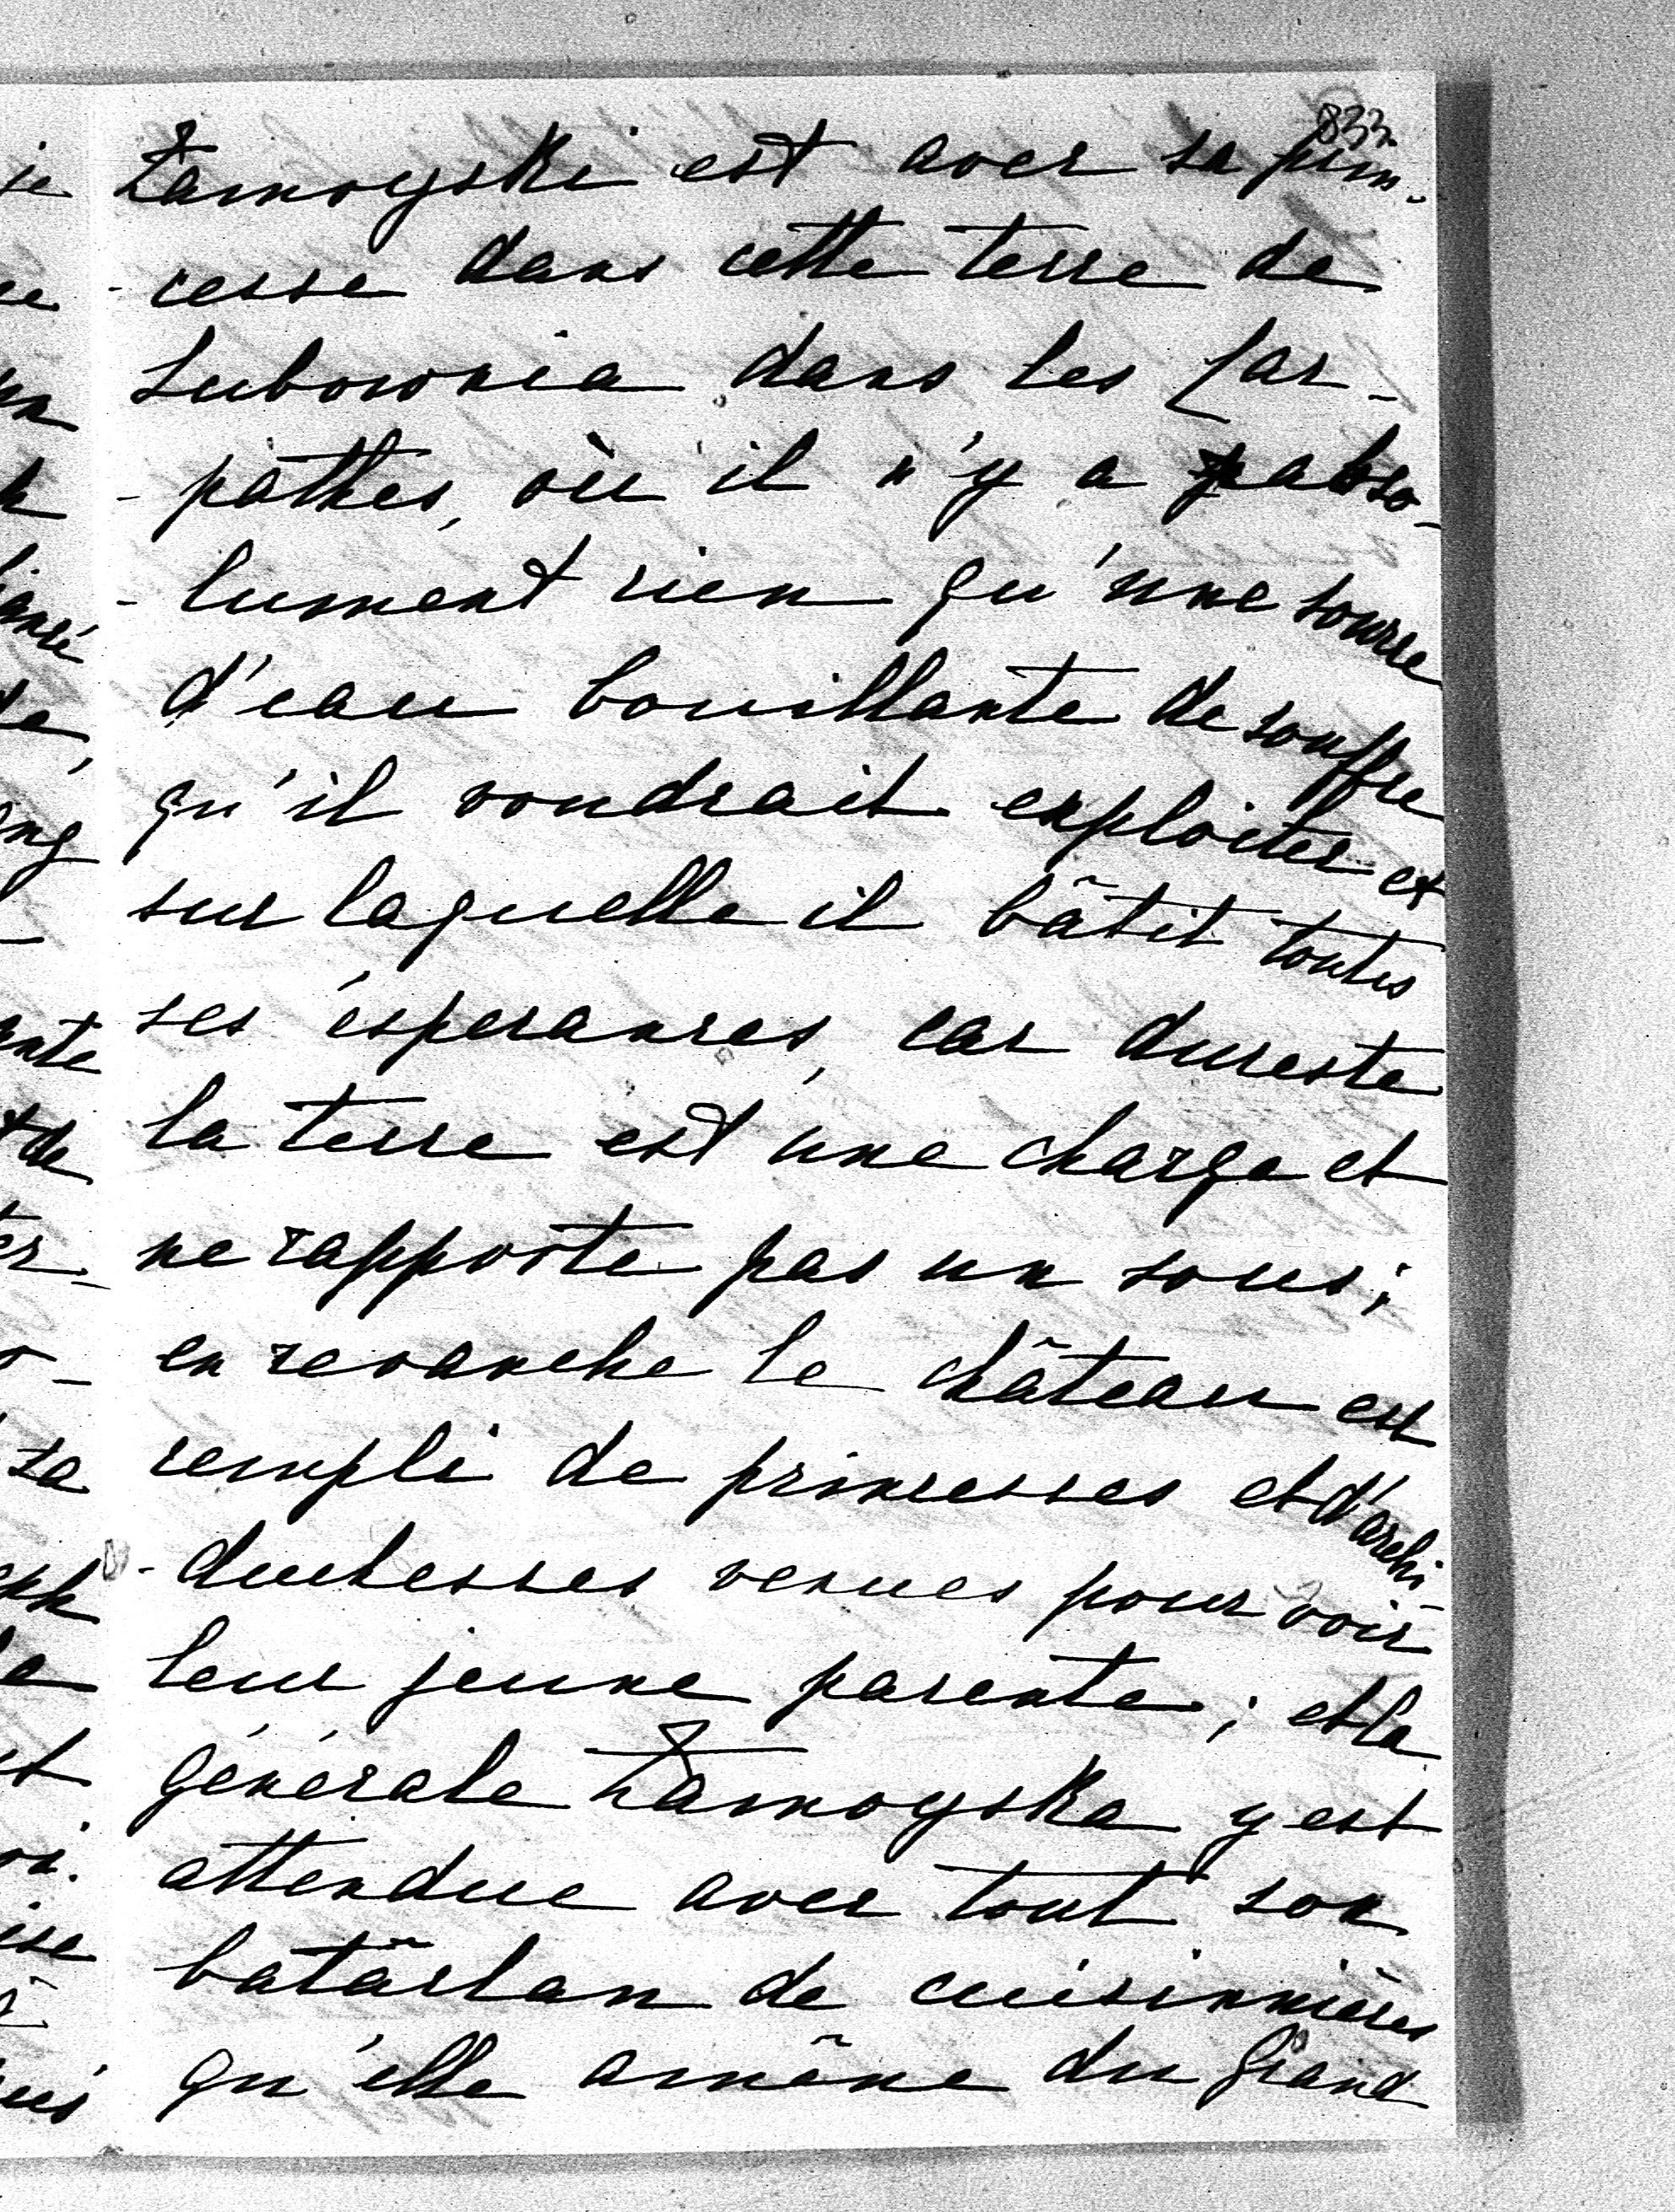 833
Zamoyski est avec sa prin-
-cesse dans cette terre de
Lubownia dans les Car-
-pathes, où il n'y a abso-
-lument rien qu'une source
d'eau bouillante de souffre
qu'il voudrait exploiter et
sur laquelle il bâtit toutes
ses éspérances, car dureste
la terre est une charge et
ne rapporte pas un sous;
en revanche le château est
rempli de princesses et d'archi-
-duchesses venues pour voir
leur jeune parente; et la
générale Zamoyska y est
attendue avec tout son
batârlan de cuisinnières
qu'elle amêne du Grand